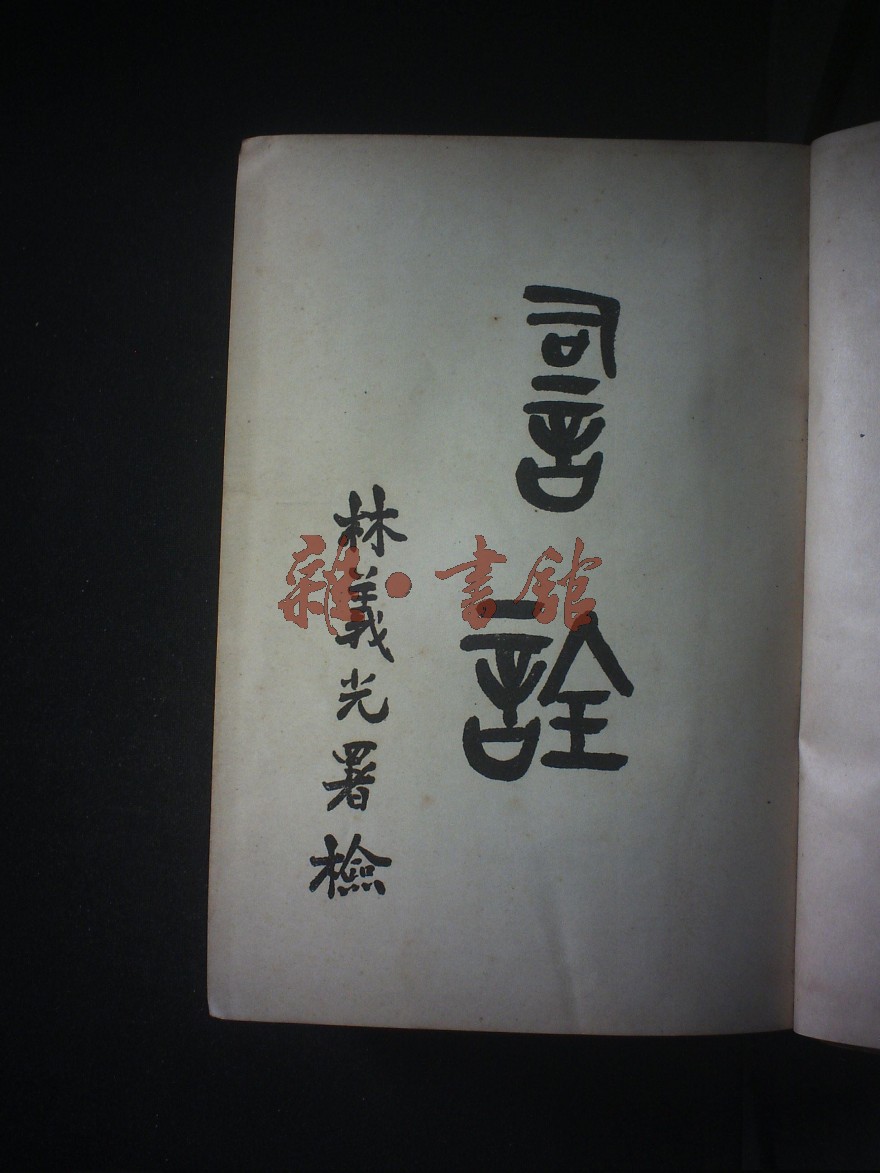 詞詮
林義光署檢
雜·書館